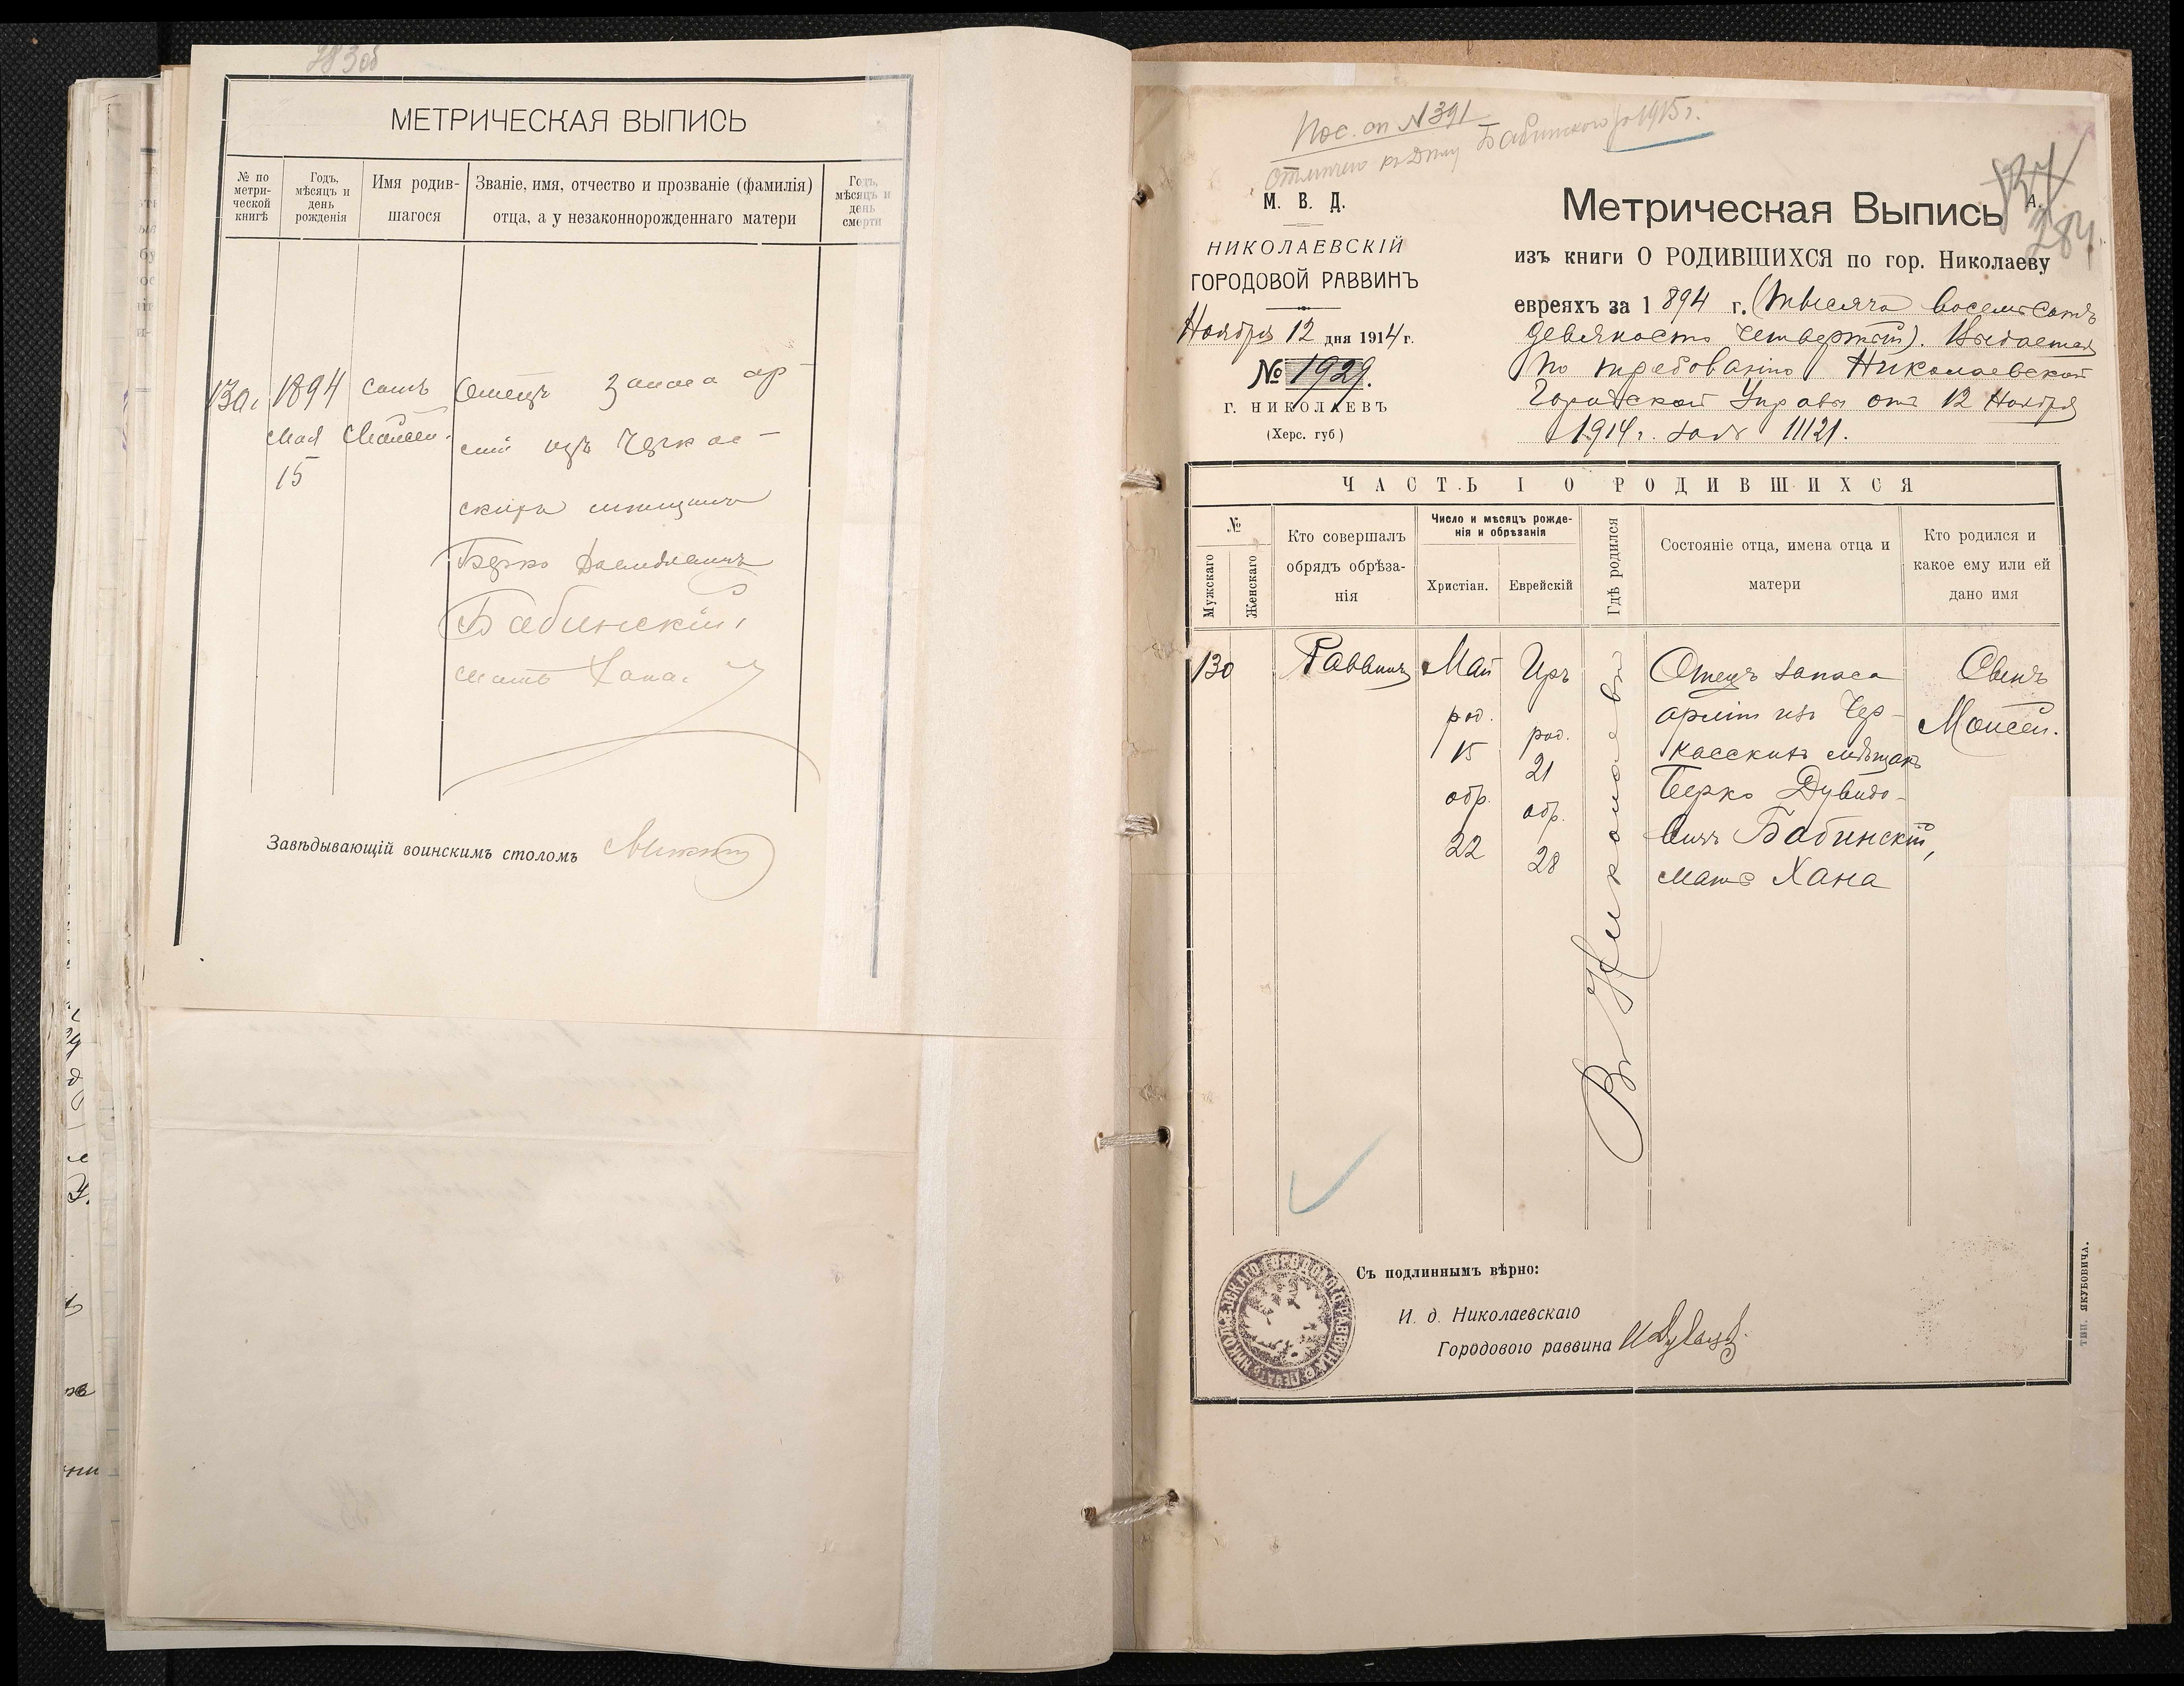 283 об
МЕТРИЧЕСКАЯ ВЫПИСЬ
№ по метри-ческой книгѣ
Годъ, мѣсяцъ и день рожденія
Имя родив-шагося
Званіе, имя, отчество и прозваніе (фамилія) отца, а у незаконнорожденнаго матери
Годъ, мѣсяцъ и день смерти
130. 1894 сынъ Отецъ запаса ар-
Мая Моисей. міи изъ Черкас-
15
скихъ мѣщанъ
Берко Давидовичъ
Бабинскій,
мать Хана.
Завѣдывающій воинскимъ столомъ
Пос. оп № 391
Бабинского 1915 г.
М. В. Д.
НИКОЛАЕВСКІЙ
ГОРОДОВОЙ РАВВИНЪ
Ноября 12 дня 1914 г.
№ 1929.
г. НИКОЛАЕВЪ
(Херс. губ)
А.
284
Метрическая Выпись
изъ книги О РОДИВШИХСЯ по гор. Николаеву
евреяхъ за 1894 г. (тысяча восемьсотъ
девяносто четвертый). Выдается
по требованію Николаевской
Городской Управы отъ 12 Ноября
1914 г. за № 11121.
ЧАСТЬ I О РОДИВШИХСЯ
№
Мужскаго
Женскаго
Кто совершалъ обрядъ обрѣза-нія
Число и мѣсяцъ рожде-нія и обрѣзанія
Христіан.
Еврейскій
Гдѣ родился
Состояніе отца, имена отца и матери
Кто родился и какое ему или ей дано имя
130 Раввинъ
Май
род.
15
обр.
22
Иръ
род.
21
обр.
28
Въ Николаевѣ
Отецъ запаса
арміи изъ Чер-
касскихъ мѣщанъ
Берко Дувидо-
вичъ Бабинскій,
мать Хана
Сынъ
Моисей.
Съ подлиннымъ вѣрно:
И. д. Николаевскаго
Городового раввина
ПЕЧАТЬ НИКОЛАЕВСКАГО ГОРОДОВОГО РАВВИНА
ТИП. ЯКУБОВИЧА.